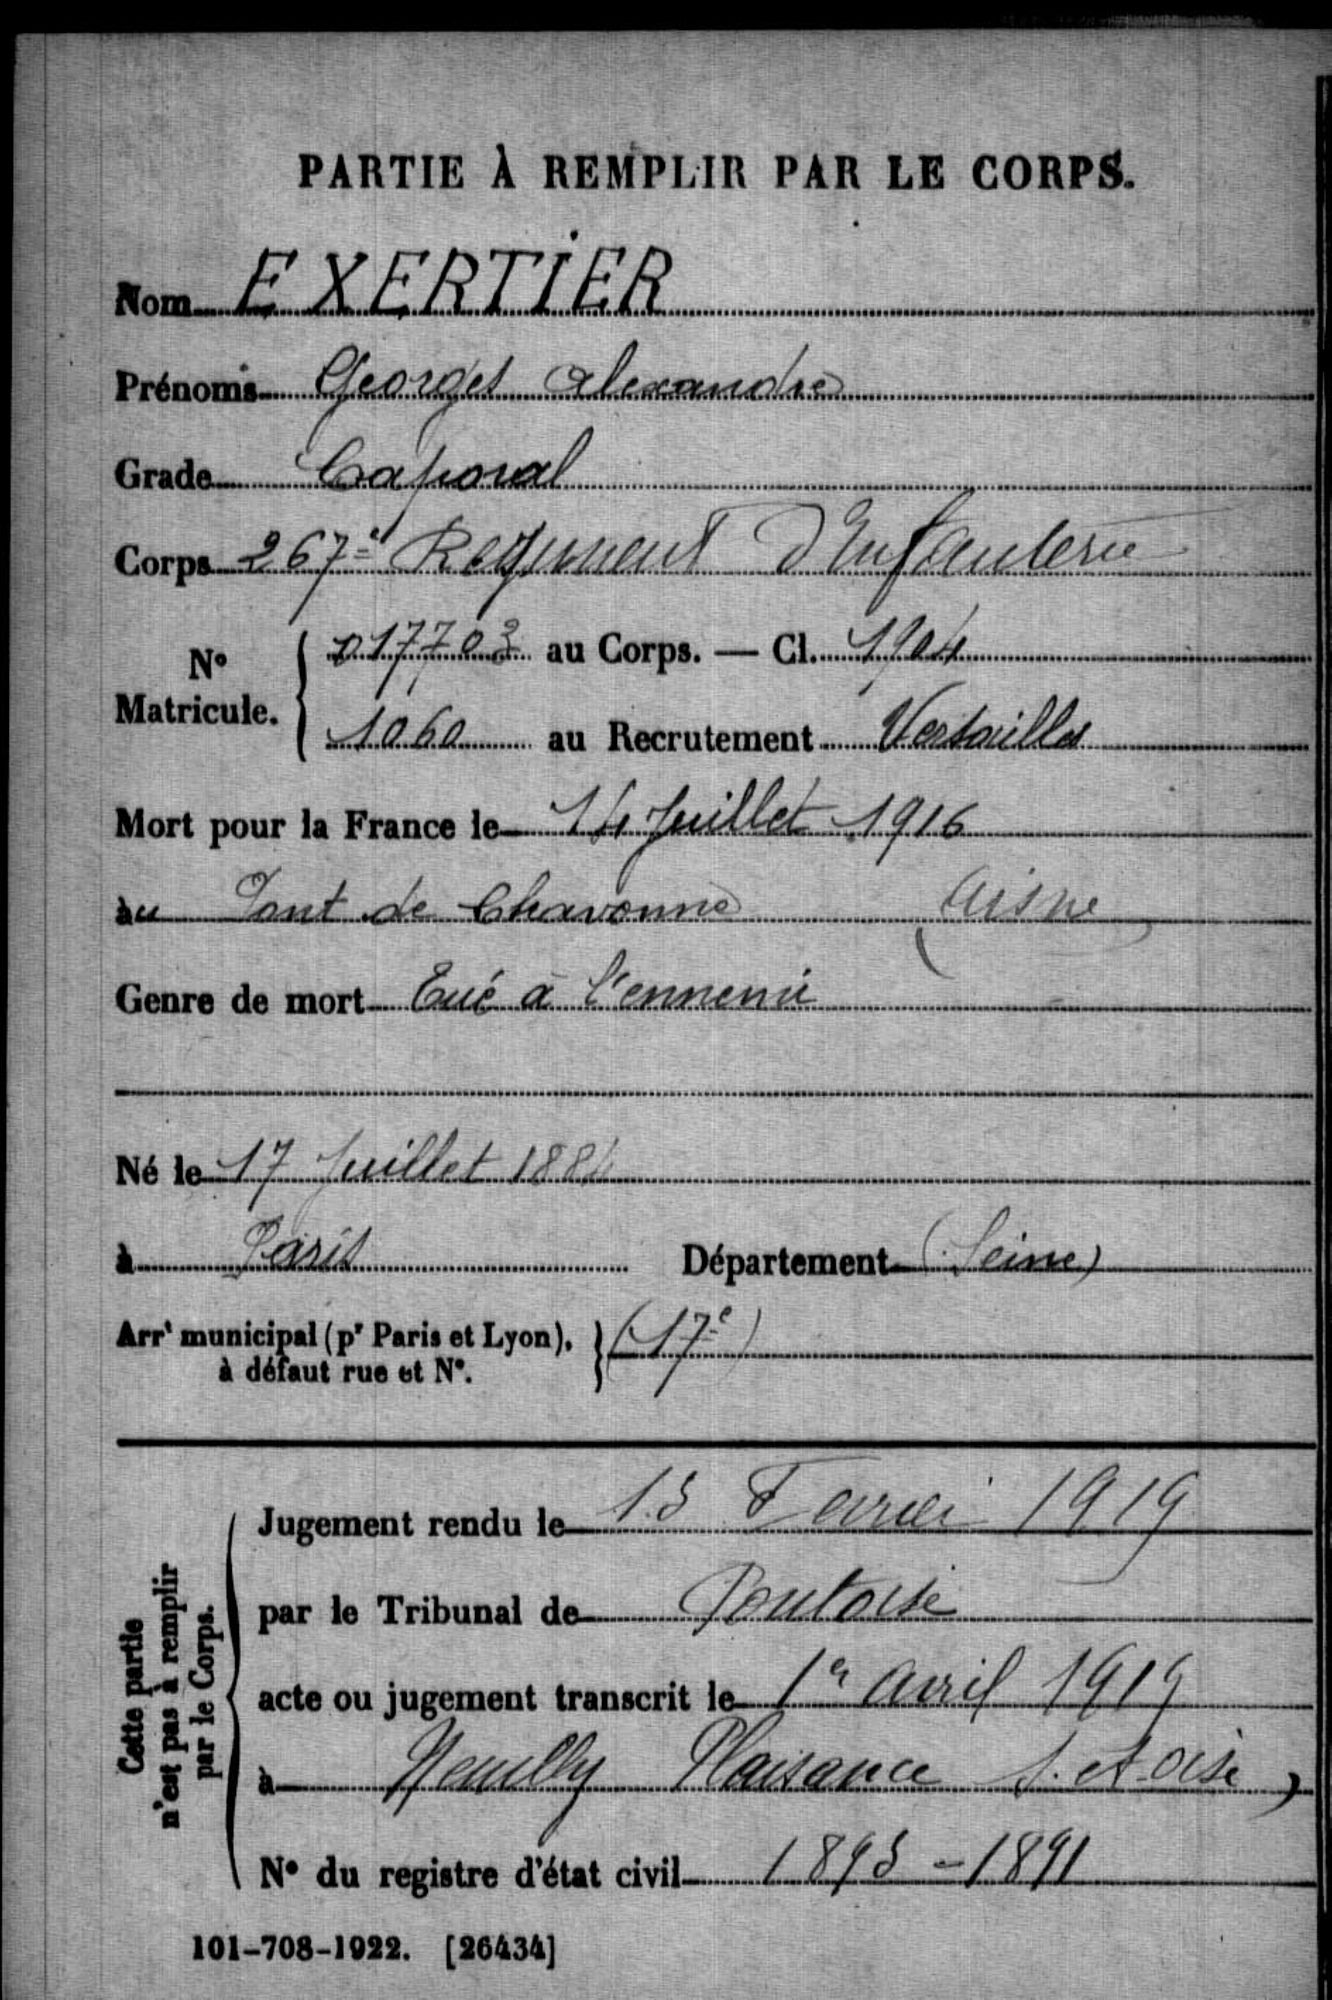 PARTIE À REMPLIR PAR LE CORPS.
Nom EXERTIER
Prénoms Georges Alexandre
Grade Caporal
Corps 267e Régiment d'Infanterie
No Matricule. 017703 au Corps. — Cl. 1904
1060 au Recrutement Versailles
Mort pour la France le 14 Juillet 1916
au Pont de Chavonne (Aisne)
Genre de mort Tué à l'ennemi
Né le 17 Juillet 1884
à Paris Département (Seine)
Arrt municipal (pr Paris et Lyon), à défaut rue et No. (17e)
Cette partie n'est pas à remplir par le Corps.
Jugement rendu le 13 Fevrier 1919
par le Tribunal de Pontoise
acte ou jugement transcrit le 1er avril 1919
à Neuilly Plaisance S. et Oise)
No du registre d'état civil 1893-1891
101-708-1922. [26434]